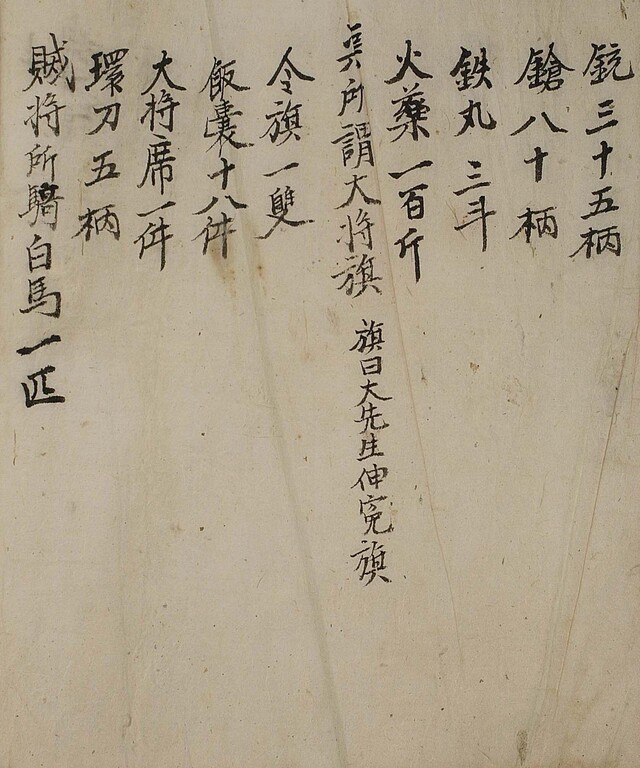 銃三十五柄
鎗八十柄
鉄丸三斗
火藥一百斤
其所謂大将旗 旗曰大先生伸寃旗
令旗一雙
飯囊十八件
大将席一件
環刀五柄
賊将所騎白馬一匹